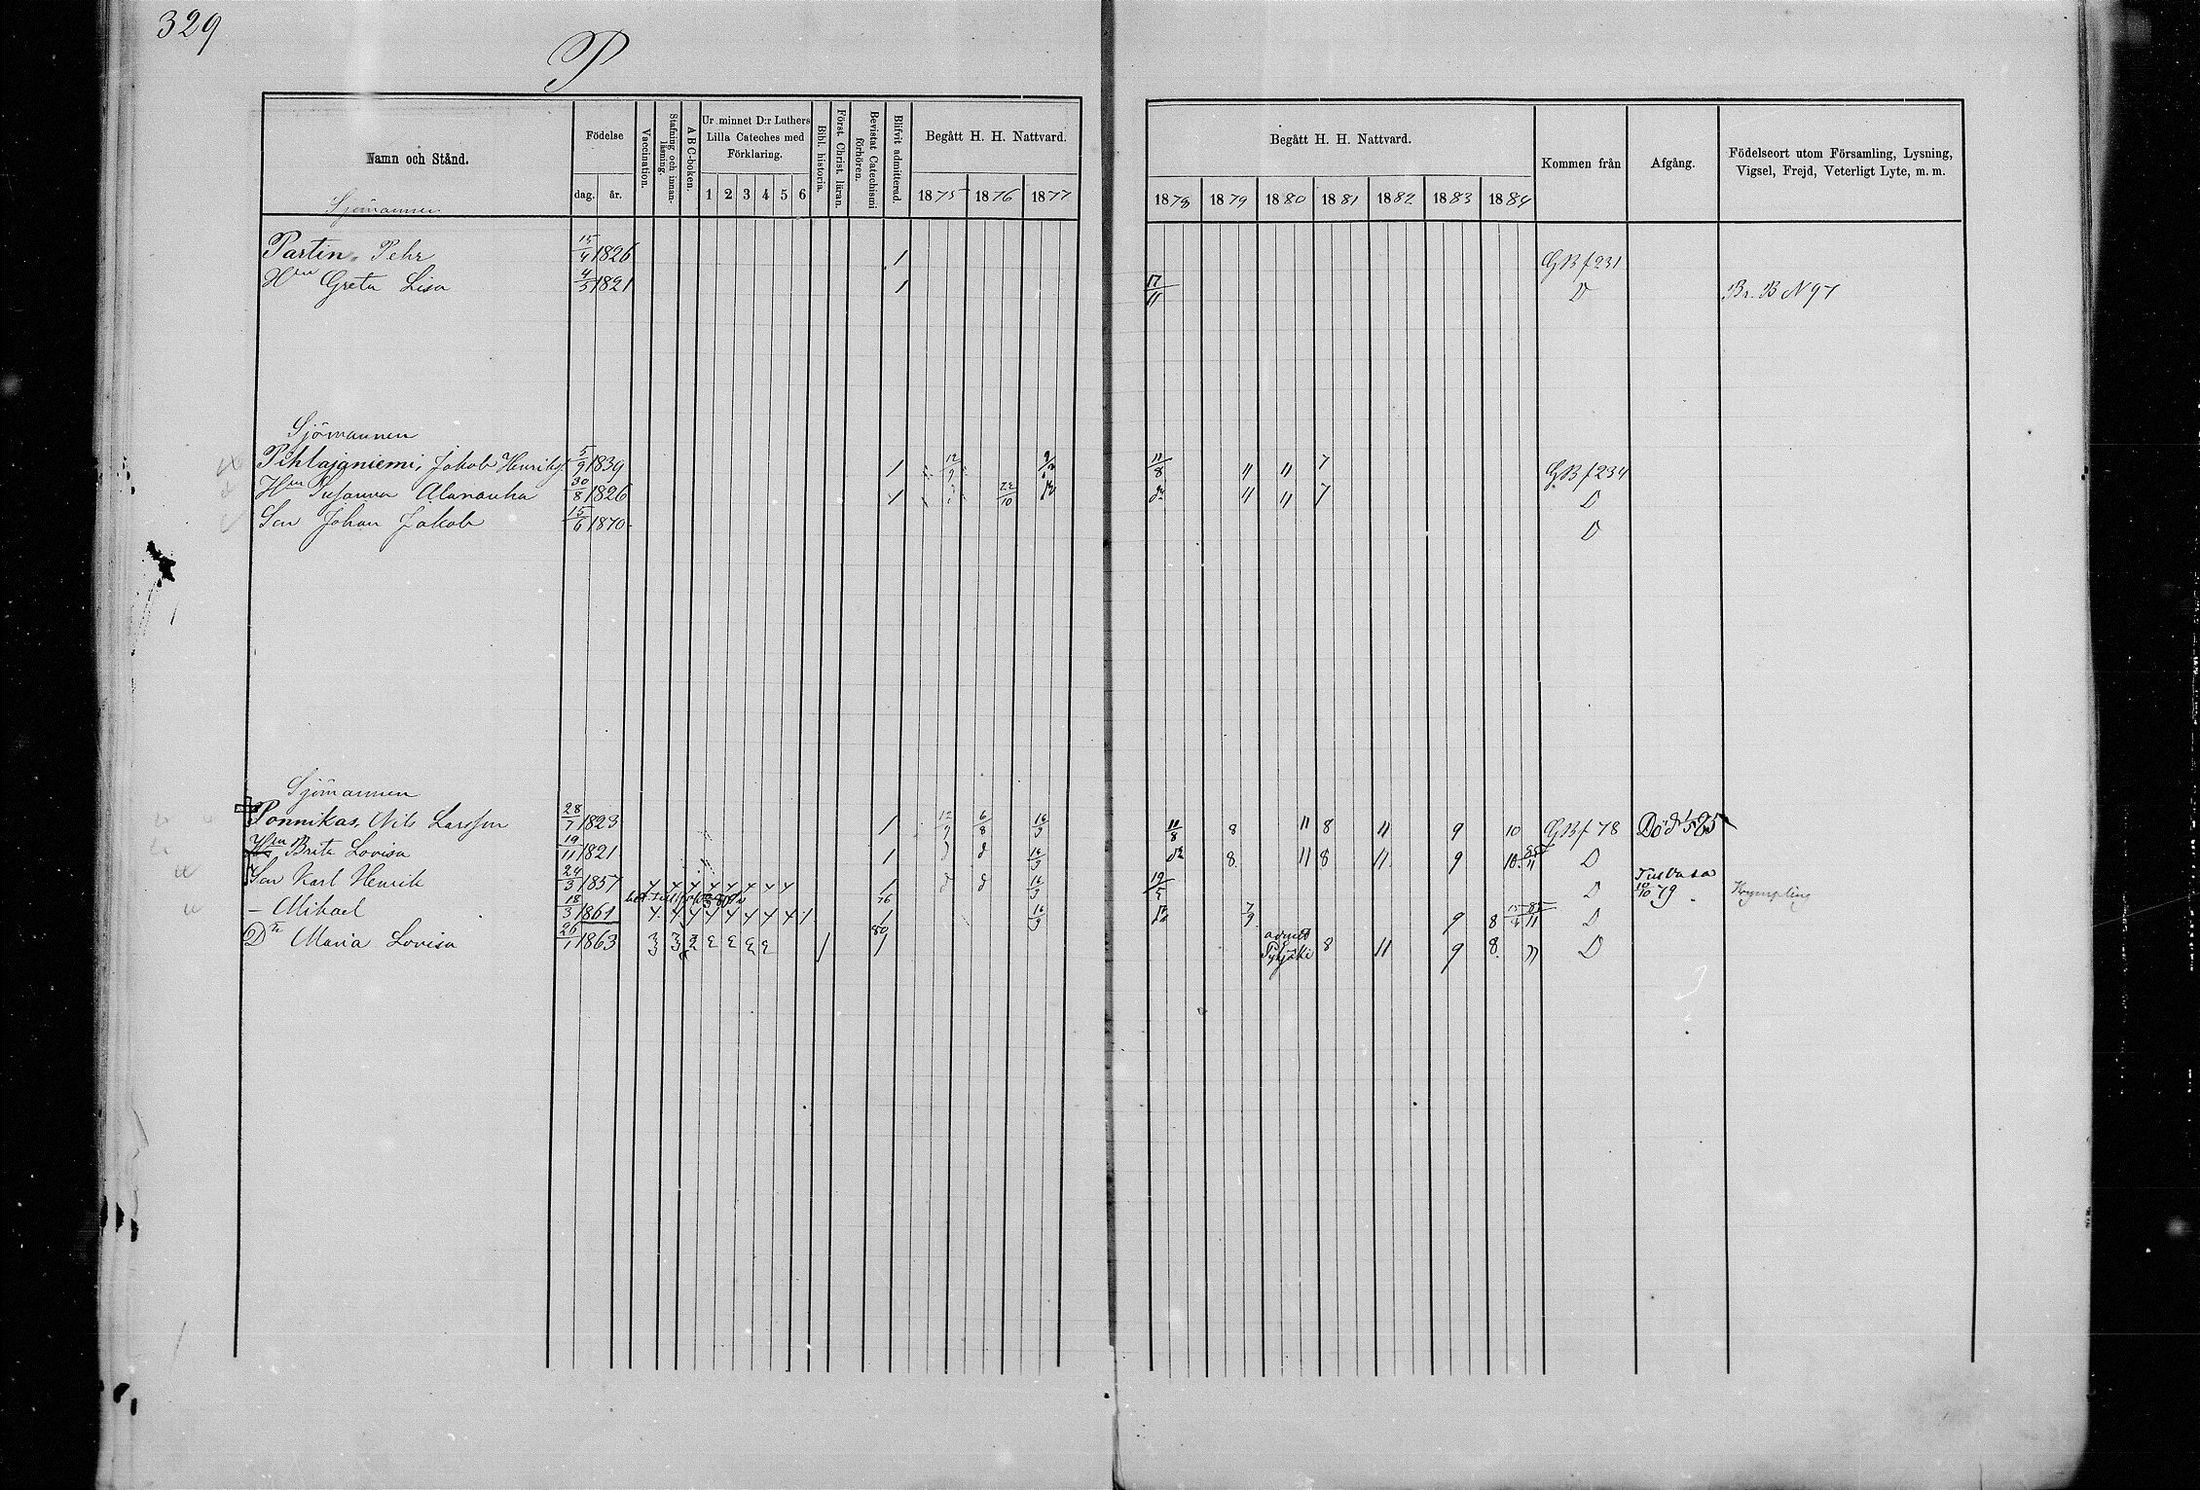 329
P
Namn och Stånd.
Födelse
dag. år.
Vaccination.
Stafning och innanläsning.
A B C-boken.
Ur minnet D:r Luthers Lilla Cateches med Förklaring.
1 2 3 4 5 6
Bibl. historia.
Först. Christ. läran.
Bevistat Catechismi förhören.
Blifvit admitterad.
Begått H. H. Nattvard.
1875 1876 1877
Begått H. H. Nattvard.
1878 1879 1880 1881 1882 1883 1884
Kommen från
Afgång.
Födelseort utom Församling, Lysning, Vigsel, Frejd, Veterligt Lyte, m. m.
Sjömannen
Partin, Pehr 15/4 1826 1 GB f 231
Hn Greta Lisa 4/5 1821 1 17/11 D Br. B N 97
Sjömannen
Pihlajaniemi, Jakob 5/9 1839 1 12/9 11/8 11 11 7 GB f 234
Hn Susanna 30/8 1826 1 22/10 11 11 7 D
Son Johan Jakob 15/6 1870 D
Sjömannen
Ponnikas, Nils Larsson 28/7 1823 1 12/9 6/8 16/9 11/8 8 11 8 11 9 10 GB f 78 Död
Hn Brita Lovisa 19/11 1821 1 d d 16/9 8 11 8 11 9 10 D
Son Karl Henrik 24/3 1857 4 4 4 4 4 4 4 1 d d 16/9 19/5 D 79
– Mikael 18/3 1861 4 4 4 4 4 4 4 4 1 1 16/9 7/9 9 8 D
Dr Maria Lovisa 26/1 1863 80 1 8 11 9 8 D